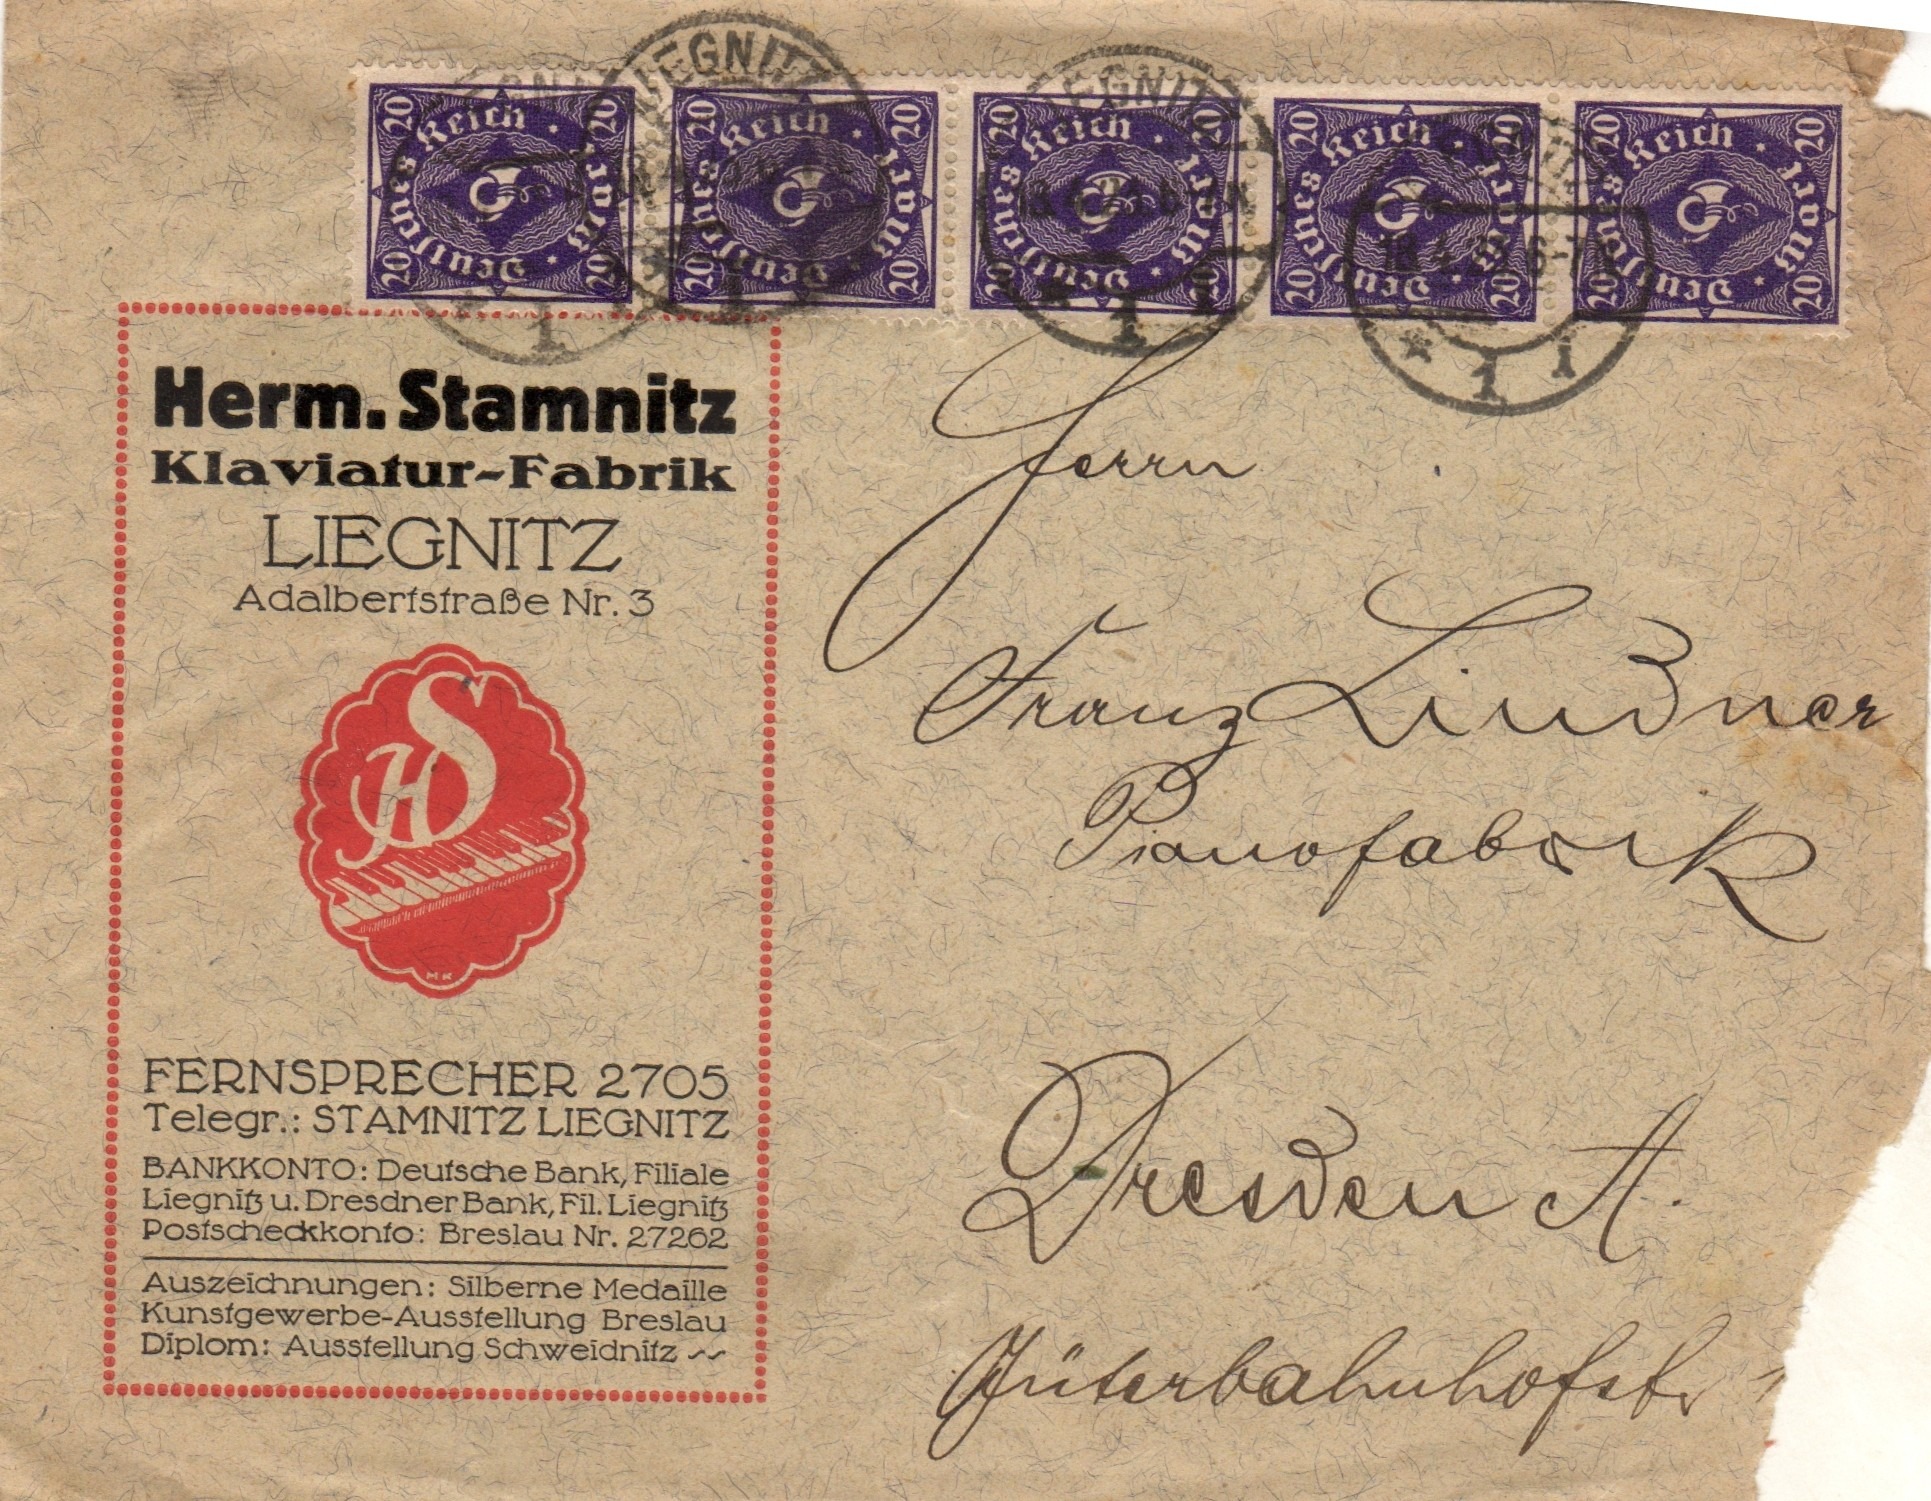 20 Deutsches Reich 20 Mark 20 20
20 Deutsches Reich 20 Mark 20 20
20 Deutsches Reich 20 Mark 20 20
20 Deutsches Reich 20 Mark 20 20
20 Deutsches Reich 20 Mark 20 20
LIEGNITZ
* 1
LIEGNITZ
* 1
* 1 i
Herm. Stamnitz
Klaviatur-Fabrik
LIEGNITZ
Adalbertstraße Nr. 3
HS
MK
FERNSPRECHER 2705
Telegr.: STAMNITZ LIEGNITZ
BANKKONTO: Deutsche Bank, Filiale
Liegnitz u. Dresdner Bank, Fil. Liegnitz
Postscheckkonto: Breslau Nr. 27262
Auszeichnungen: Silberne Medaille
Kunstgewerbe-Ausstellung Breslau
Diplom: Ausstellung Schweidnitz
Herrn
Franz Lindner
Pianofabrik
Dresden A.
Güterbahnhofstr